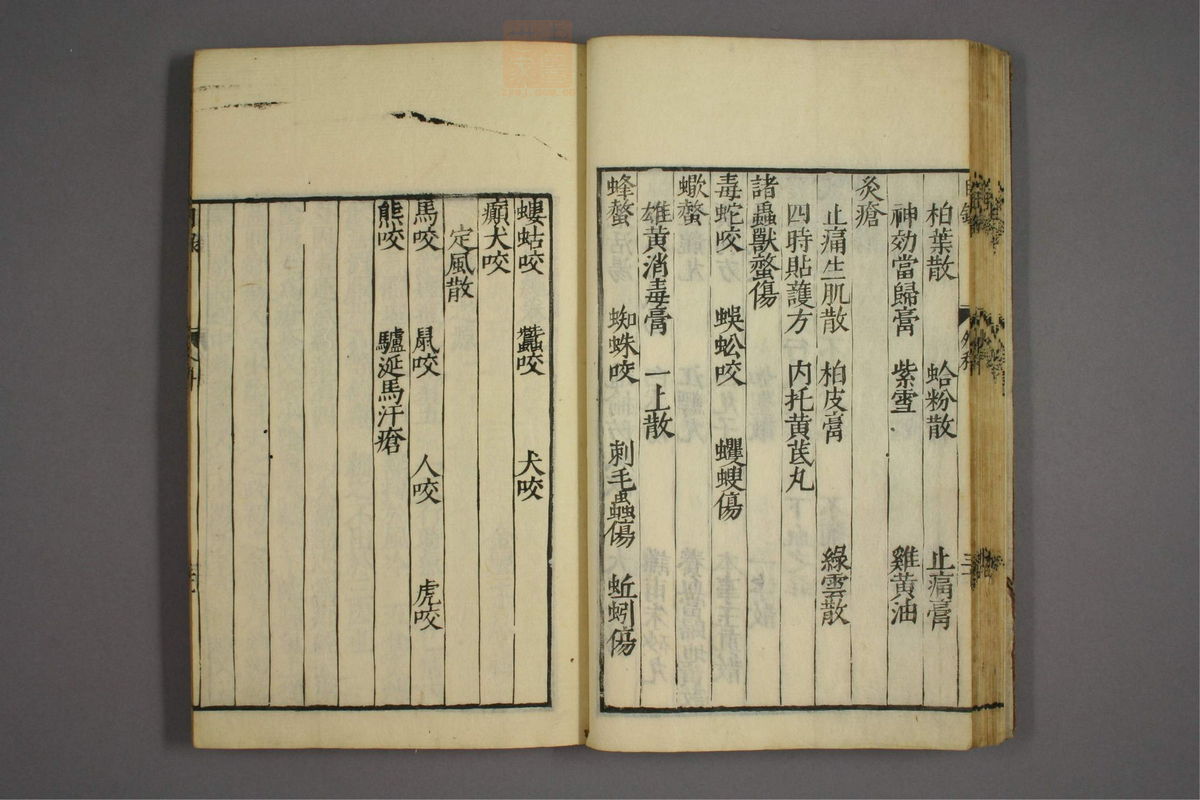 柏葉散 蛤粉散 止痛膏
神効當歸膏 紫雪 雞黄油
灸瘡
止痛生肌散 柏皮膏 綠雲散
四時貼護方 内托黄芪丸
諸蟲獸螫傷
毒蛇咬 蜈蚣咬 蠼螋傷
蠍螫
雄黄消毒膏 一上散
蜂螫 蜘蛛咬 刺毛蟲傷 蚯蚓傷
螻蛄咬 蠶咬 犬咬
癲犬咬
定風散
馬咬 鼠咬 人咬 虎咬
熊咬 驢涎馬汗瘡